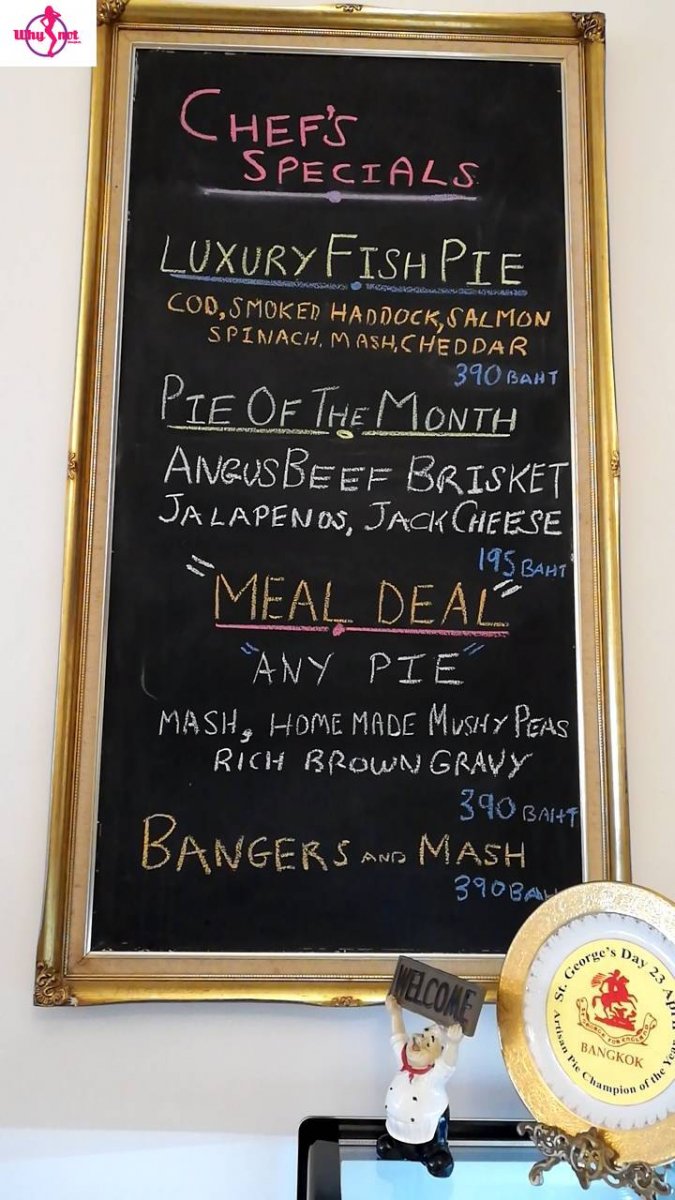 Why not
CHEF'S
SPECIALS
LUXURY FISH PIE
COD, SMOKED HADDOCK, SALMON
SPINACH, MASH, CHEDDAR
390 BAHT
PIE OF THE MONTH
ANGUS BEEF BRISKET
JALAPENOS, JACK CHEESE
195 BAHT
"MEAL DEAL"
"ANY PIE"
MASH, HOMEMADE MUSHY PEAS
RICH BROWN GRAVY
390 BAHT
BANGERS AND MASH
390 BAH
WELCOME
St. George's Day 23 April
BANGKOK
Artisan Pie Champion of the Year